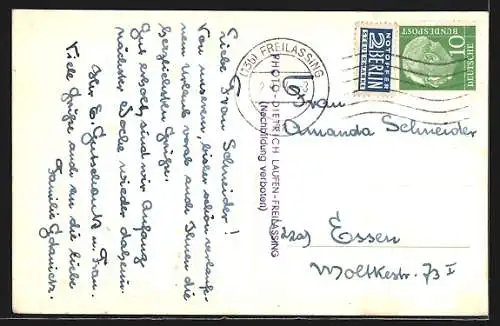 Liebe Frau Schneider!
Von unserem, bisher schön verlaufe-
nem Urlaub vorab auch Ihnen die
herzlichsten Grüße.
Gut erholt, sind wir Anfang
nächster Woche wieder daheim.
Ihr E. u. Frau.
Viele Grüße auch an die liebe
Familie
PHOTO-DIETRICH LAUFEN-FREILASSING
(Nachbildung verboten)
(13b) FREILASSING
NOTOPFER
2 BERLIN
STEUERMARKE
10
DEUTSCHE
BUNDESPOST
Frau
Amanda Schneider
(22a) Essen
Moltkestr. 73 I